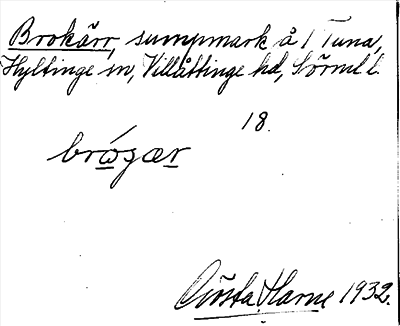 Brokärr, sumpmark å 1 Tuna,
Hyltinge sn, Villåttinge hd, Sörml. l.
18.
brógær
Gösta Harne 1932.